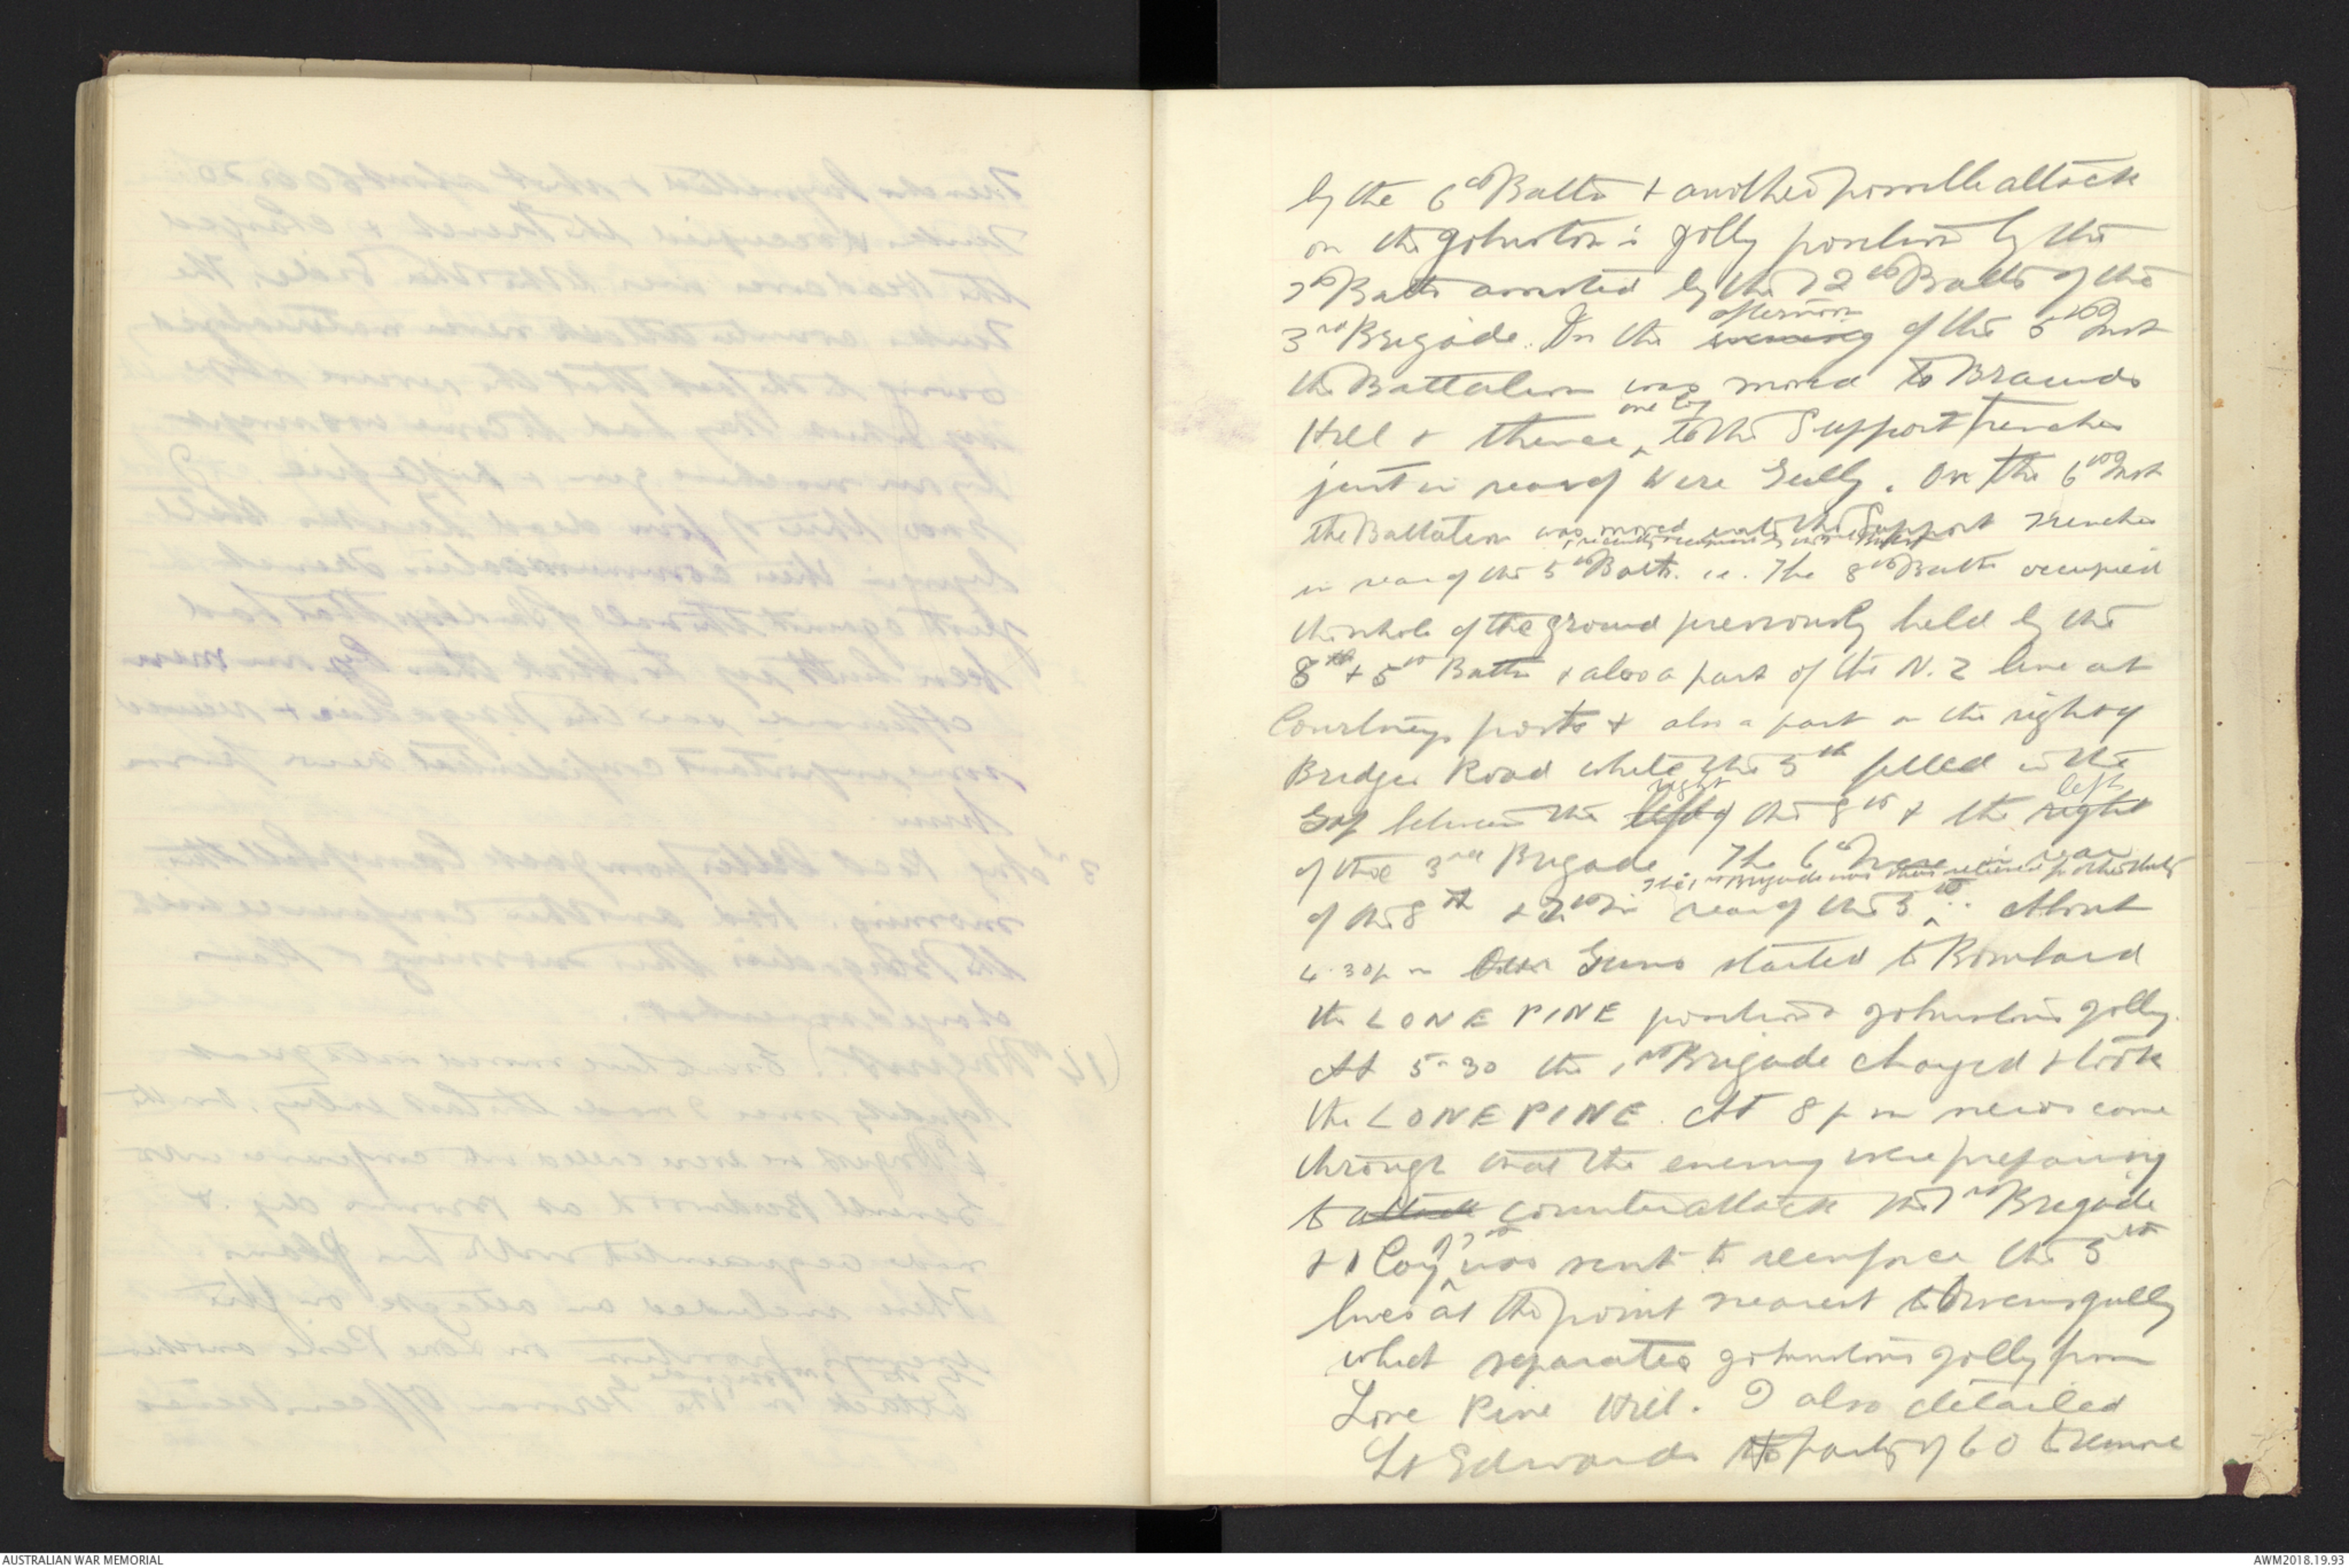 by the 6th Battn & another possible attack
on the Johnston's Jolly position by the
7th Battn assisted by the 12th Battn of the
3rd Brigade. On the evening afternoon of the 5th Inst
the Battalion was moved to Braunds
Hill & thence one Coy to the Support trenches
just in rear of Wire Gully. On the 6th Inst
the Battalion was moved into the Support Trenches
in rear of the 5th Battn. i.e. The 8th Battn occupied
the whole of the ground previously held by the
8th & 5th Battn & also a part of the N.Z line at
Courtneys posts & also a part on the right of
Bridges Road while the 5th filled in the
Gap between the left right of the 8th & the right left
of the 3rd Brigade. The 6th were in rear
of the 8th & 7th in rear of the 5th. The 1st Brigade was thus relieved for other duty About
4.30 p m Our Guns started to Bombard
the LONE PINE position & Johnstons Jolly.
At 5-30 the 1st Brigade charged & took
the LONE PINE. At 8 p m news came
through that the enemy were preparing
to attack counterattack the 1st Brigade
& 1 Coy of 7th was sent to reenforce the 5th
lines at the point nearest to Owens gully
which separates Johnstons Jolly from
Lone Pine Hill. I also detailed
Lt Edwards & party of 60 to remove
AUSTRALIAN WAR MEMORIAL
AWM2018.19.93